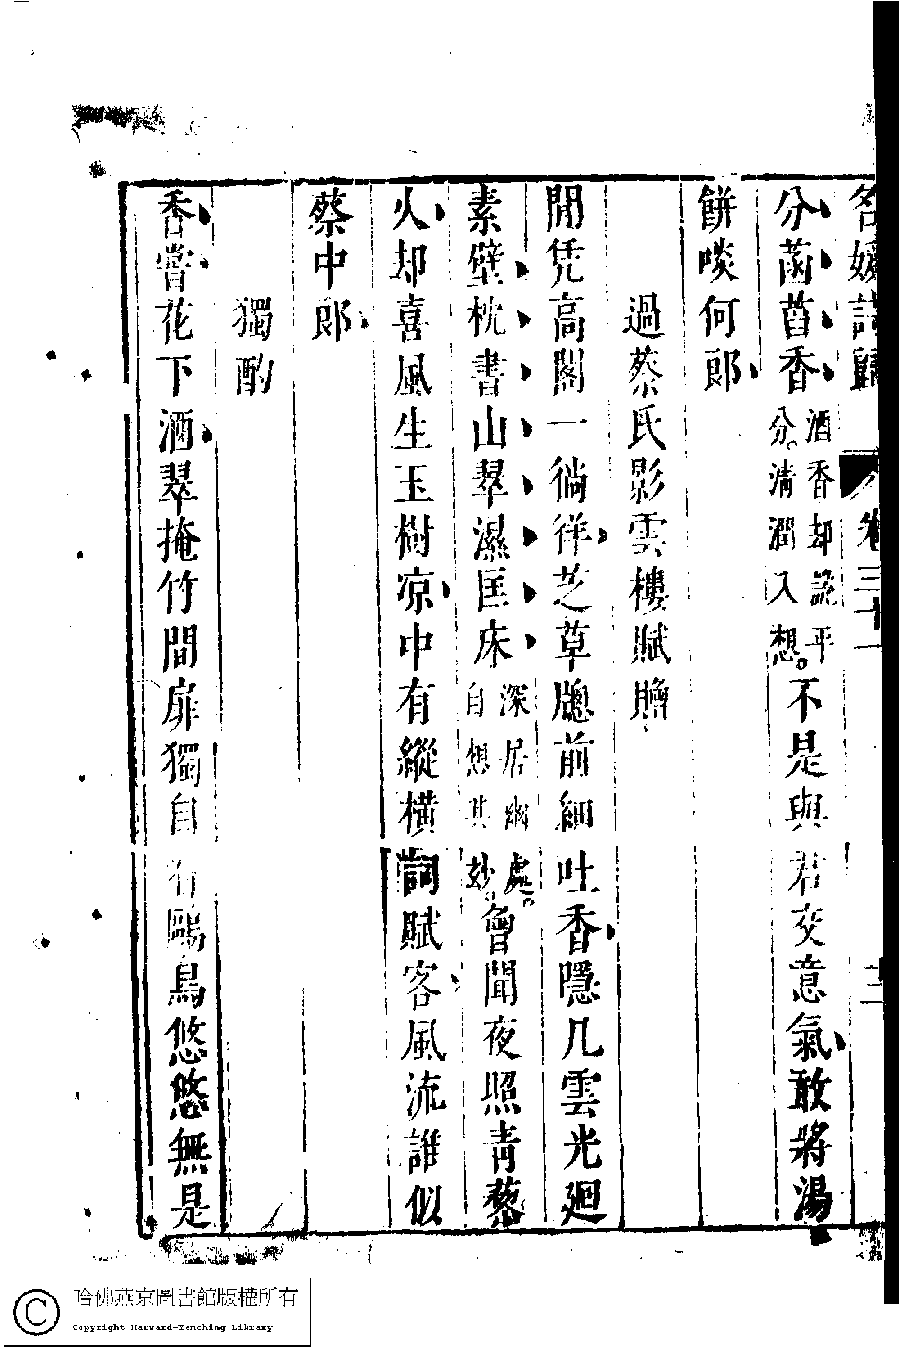 名媛詩歸 卷三十一 二
分菡萏香酒香却説平分。清潤入想。不是與君交意氣敢將湯
餅啖何郎
過蔡氏影雲樓賦贈
閒凭高閣一徜徉芝草牕前細吐香隱几雲光廻
素壁枕書山翠濕匡床深居幽處。自想其妙。曾聞夜照青藜
火却喜風生玉樹凉中有縱橫詞賦客風流誰似
蔡中郎
獨酌
香嘗花下酒翠掩竹間扉獨自有鷗鳥悠悠無是
哈佛燕京圖書館版權所有
Copyright Harvard-Yenching Library